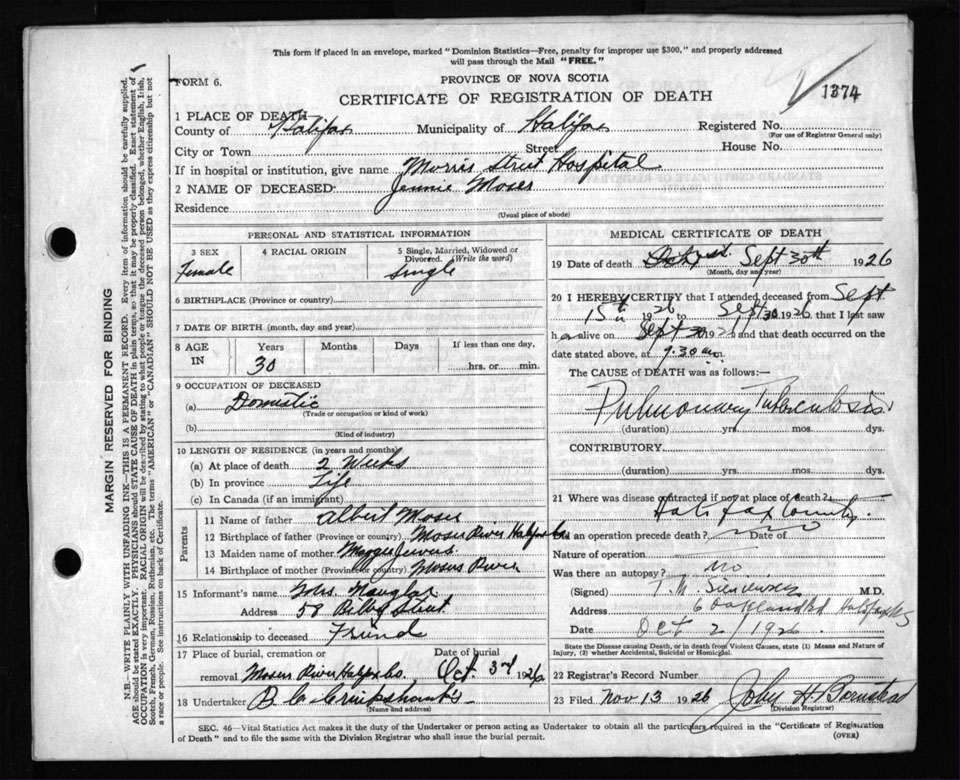 This form if placed in an envelope, marked "Dominion Statistics—Free, penalty for improper use $300," and properly addressed
will pass through the Mail "FREE."
FORM 6.
PROVINCE OF NOVA SCOTIA
CERTIFICATE OF REGISTRATION OF DEATH
1374
1 PLACE OF DEATH
County of Halifax Municipality of Halifax Registered No.
(For use of Registrar General only)
City or Town Street House No.
If in hospital or institution, give name Morris Street Hospital
2 NAME OF DECEASED: Jennie Moser
Residence
(Usual place of abode)
PERSONAL AND STATISTICAL INFORMATION
3 SEX 4 RACIAL ORIGIN 5 Single, Married, Widowed or Divorced. (Write the word)
Female Single
6 BIRTHPLACE (Province or country)
7 DATE OF BIRTH (month, day and year)
8 AGE IN Years Months Days If less than one day,
30 hrs. or min.
9 OCCUPATION OF DECEASED
(a) Domestic
(Trade or occupation or kind of work)
(b)
(Kind of industry)
10 LENGTH OF RESIDENCE (in years and months)
(a) At place of death 2 Weeks
(b) In province Life
(c) In Canada (if an immigrant)
Parents
11 Name of father Albert Moser
12 Birthplace of father (Province or country) Moser River Halifax Co
13 Maiden name of mother Maggie Jewers
14 Birthplace of mother (Province or country) Mosers River
15 Informant's name Mrs.
Address 58 Street
16 Relationship to deceased Friend
17 Place of burial, cremation or removal Date of burial
Moser River Halifax Co. Oct. 3rd 1926
18 Undertaker
(Name and address)
MEDICAL CERTIFICATE OF DEATH
19 Date of death Sept 30th 1926
(Month, day and year)
20 I HEREBY CERTIFY that I attended deceased from Sept
15th 1926 to Sept 30 1926 that I last saw
her alive on Sept 30 1926 and that death occurred on the
date stated above, at 9.30 m.
The CAUSE of DEATH was as follows:—
Pulmonary Tuberculosis
(duration) yrs. mos. dys.
CONTRIBUTORY.
(duration) yrs. mos. dys.
21 Where was disease contracted if not at place of death?
Halifax County.
Did an operation precede death? no Date of
Nature of operation
Was there an autopsy? no
(Signed) T.M. M.D.
Address 6 Oakland Rd Halifax NS
Date Oct 2/1926.
State the Disease causing Death, or in death from Violent Causes, state (1) Means and Nature of
Injury, (2) whether Accidental, Suicidal or Homicidal.
22 Registrar's Record Number
23 Filed Nov 13 1926 John H
(Division Registrar)
SEC. 46—Vital Statistics Act makes it the duty of the Undertaker or person acting as Undertaker to obtain all the particulars required in the "Certificate of Registration
of Death" and to file the same with the Division Registrar who shall issue the burial permit. (OVER)
MARGIN RESERVED FOR BINDING
N.B.—WRITE PLAINLY WITH UNFADING INK—THIS IS A PERMANENT RECORD. Every item of information should be carefully supplied.
AGE should be stated EXACTLY. PHYSICIANS should STATE CAUSE OF DEATH in plain terms, so that it may be properly classified. Exact statement of
OCCUPATION is very important. RACIAL ORIGIN will be described by stating to what people or tongue the deceased person belonged, whether English, Irish,
Scotch, French, German, Russian, Ruthenian, etc. The terms "AMERICAN" or "CANADIAN" SHOULD NOT BE USED as they express citizenship but not
a race or people. See instructions on back of Certificate.